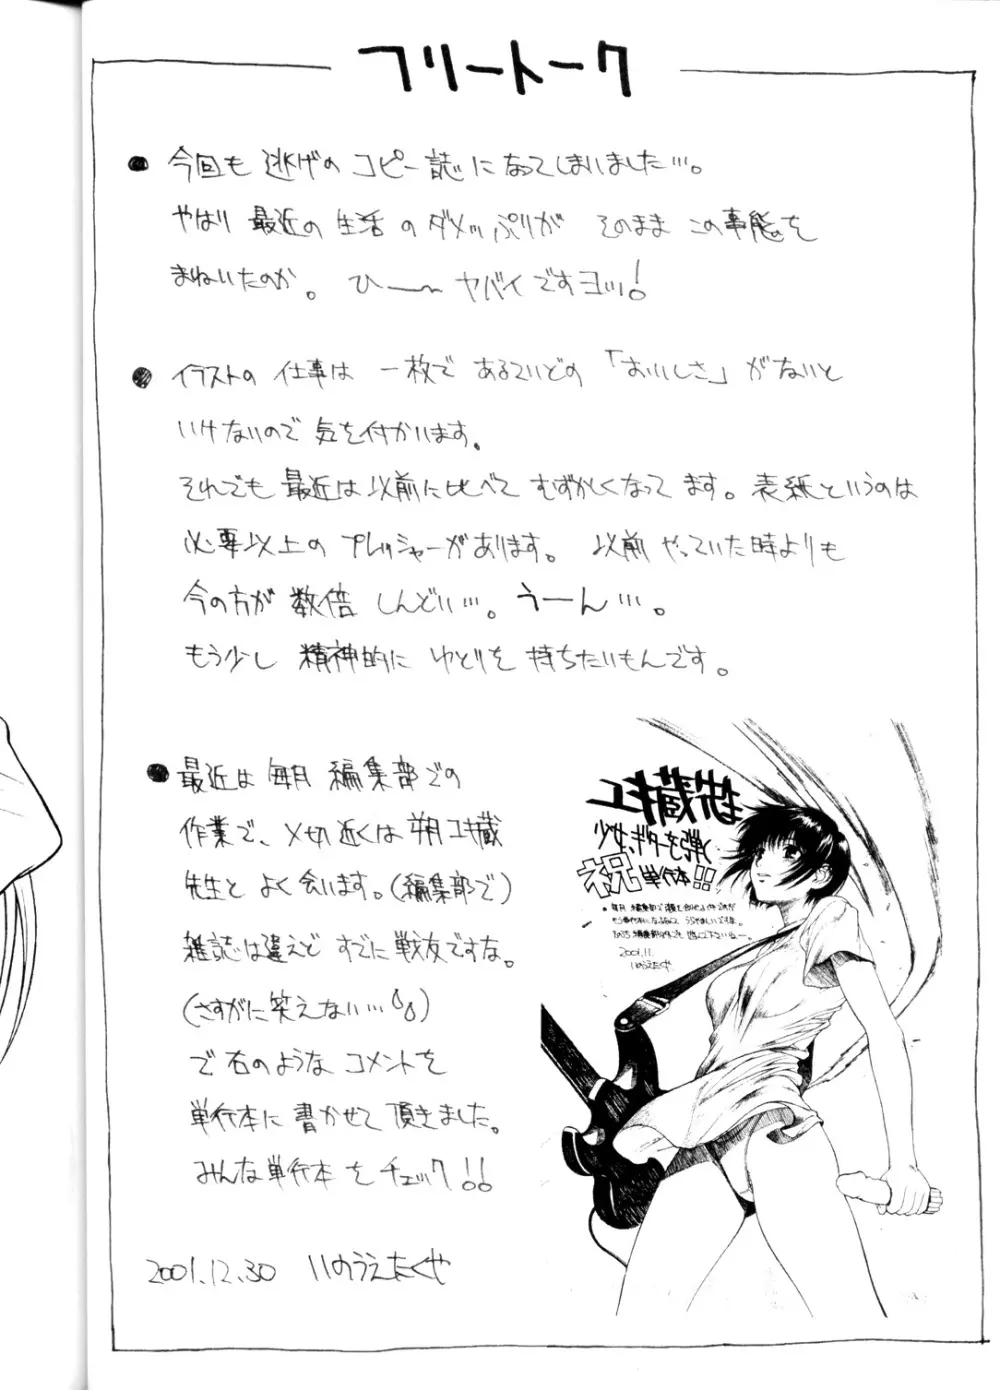 フリートーク
● 今回も逃げのコピー誌になってしまいました…。
やはり最近の生活のダメっぷりが そのままこの事態を
まねいたのか。 ひ——〜ヤバイですヨッ!
● イラストの仕事は 一枚で あるていどの「おいしさ」がないと
いけないので気を付かいます。
それでも最近は以前に比べてむずかしくなってます。表紙というのは
必要以上のプレッシャーがあります。 以前やっていた時よりも
今の方が数倍しんどい…。うーん…。
もう少し 精神的に ゆとりを 持ちたいもんです。
● 最近は毎月 編集部での
作業で、〆切近くは朔ユキ蔵
先生とよく会います。(編集部で)
雑誌は違えど すでに戦友ですな。
(さすがに笑えない…)
で右のような コメントを
単行本に書かせて頂きました。
みんな単行本をチェック!!
2001.12.30 いのうえたくや
ユキ蔵先生
少女、ギターを弾く
祝 単行本!!
2001.11.
いのうえたくや